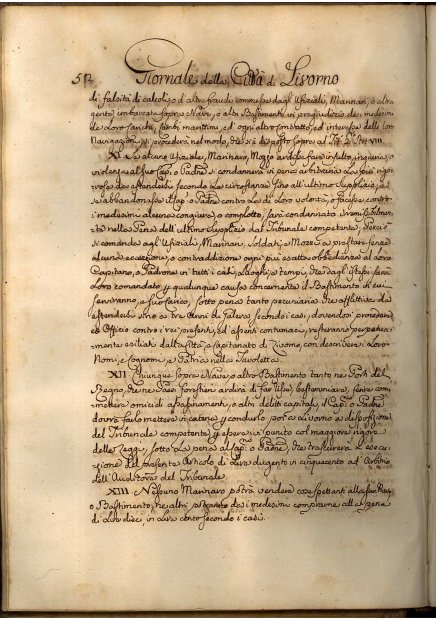 52 Giornale della Città di Livorno
di falsità di calcoli, o d'altra fraude commessa dagl'Ufiziali, Marinari, o altra
gente imbarcata sopra Nave, o altri Bastimenti in pregiudizio de' medesimi
de Loro carichi, Cambi marittimi, e d'ogni altro contratto, ed interesse delle
Navigazioni si procederà nel modo, che si è disposto sopra al VIII
XI Se alcuno Ufiziale, Marinaro, Mozzo ardisse fare insulto, ingiuria, o
violenza al suo Cap.º o Padrone si condannerà in pena arbitraria
secondo le circostanze fino all'ultimo supplizio, e
se abbandonasse il Cap.º o Padrone contro la di Loro volontà, o facesse contro
i medesimi alcune congiure, o complotto, sarà condannato
nella Pena dell'ultimo supplizio dal Tribunale competente, Perciò
si comanda agl'Ufiziali, Marinari, Soldati, e Mozzi a prestare senza
alcuna eccezione, o contraddizione ogni più esatta obbedienza al loro
Capitano, o Padrone in tutti i casi, Luoghi, e tempi, che dagl'istessi sarà
Loro comandato per qualunque causa concernente il Bastimento di cui
serviranno, e suo carico, sotto pena tanto pecuniaria che afflittiva da
estendersi sino a tre Anni di Galera secondo i casi, dovendosi procedere
ex Officio contro i rei presenti, ed assenti contumaci, resteranno perpetua-
mente esiliati dalla Città, e Capitanato di Livorno, con descrivere i Loro
Nomi, e Cognomi, e Patria nella Tavoletta.
XII Chiunque sopra Nave, o altro Bastimento tanto nei Porti del
Regno, che ne Paesi Forestieri ardirà di far rissa, bastonare, ferire com-
mettere omicidi, Assassinamenti, o altri delitti capitali, il Cap.º o Padrone
dovrà farlo mettere in catena, e condurlo poi a Livorno a disposizione
del Tribunale competente per essere ivi punito col maggior rigore
delle Leggi, sotto la pena al Cap.º o Padrone, che trascurerà l'esecu-
zione del presente Articolo di Lire dugento cinquanta ad Arbitrio
dell'Auditore del Tribunale
XIII Nessuno Marinaro potrà vendere cose spettanti alla sua Nave,
o Bastimento, ne altri potranno da i medesimi comprarne alla pena
di Lire dieci, in Lire cento secondo i casi.